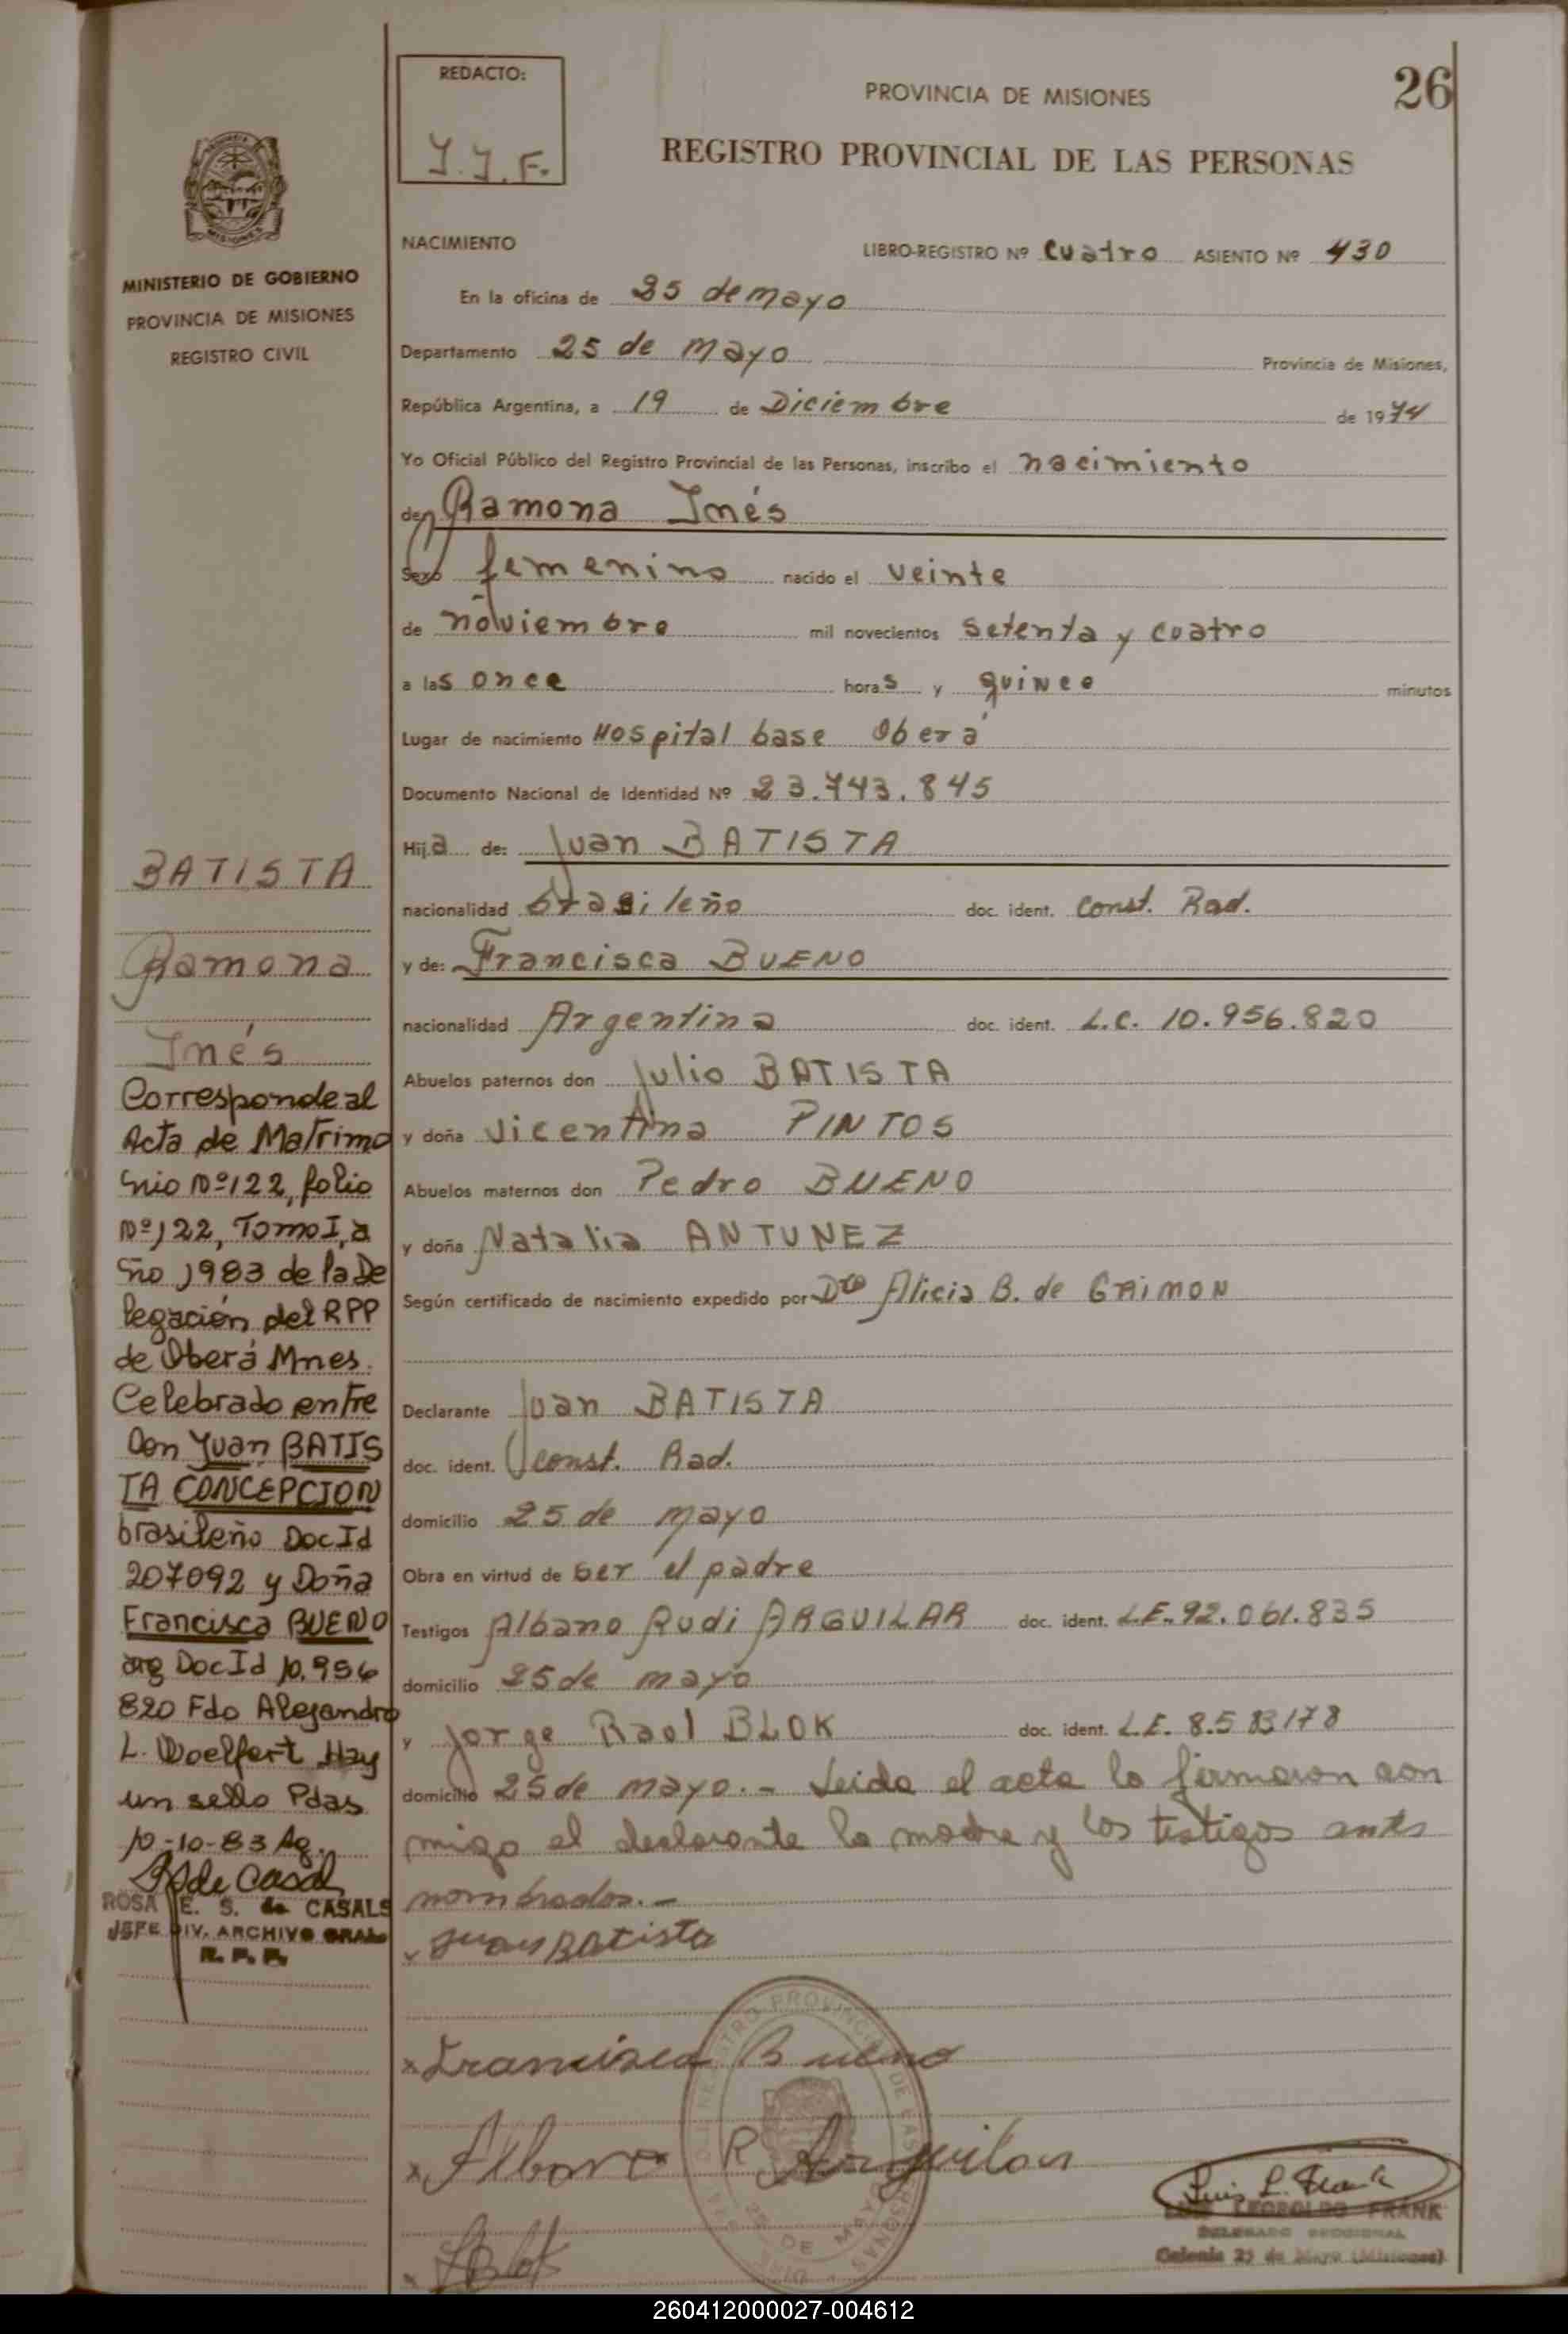 REDACTO:
J. J. F.
PROVINCIA DE MISIONES
26
REGISTRO PROVINCIAL DE LAS PERSONAS
MISIONES
MINISTERIO DE GOBIERNO
PROVINCIA DE MISIONES
REGISTRO CIVIL
NACIMIENTO LIBRO-REGISTRO Nº Cuatro ASIENTO Nº 430
En la oficina de 25 de mayo
Departamento 25 de mayo Provincia de Misiones,
República Argentina, a 19 de Diciembre de 1974
Yo Oficial Público del Registro Provincial de las Personas, inscribo el nacimiento
de Ramona Inés
Sexo femenino nacido el veinte
de noviembre mil novecientos setenta y cuatro
a las once horas y quince minutos
Lugar de nacimiento Hospital base Oberá
Documento Nacional de Identidad Nº 23.743.845
Hija de: Juan BATISTA
nacionalidad brasileño doc. ident. Const. Rad.
y de: Francisca BUENO
nacionalidad Argentina doc. ident. L.C. 10.956.820
Abuelos paternos don Julio BATISTA
y doña Vicentina PINTOS
Abuelos maternos don Pedro BUENO
y doña Natalia ANTUNEZ
Según certificado de nacimiento expedido por Dra Alicia B. de GAIMON
Declarante Juan BATISTA
doc. ident. const. Rad.
domicilio 25 de mayo
Obra en virtud de ser el padre
Testigos Albano Rudi ARGUILAR doc. ident. L.E. 92.061.835
domicilio 25 de mayo
y Jorge Raol BLOK doc. ident. L.E. 8.583178
domicilio 25 de mayo.- Leida el acta lo firmaron con
migo el declarante la madre y los testigos ante
nombrados.-
x Juan Batista
x Francisca Bueno
x Albano R Arguilar
x JBlok
BATISTA
Ramona
Inés
Corresponde al
Acta de Matrimo
nio Nº 122, folio
Nº 122, Tomo I, a
ño 1983 de la De
legación del RPP
de Oberá Mnes.
Celebrado entre
Don Juan BATIS
TA CONCEPCION
brasileño Doc Id
207092 y Doña
Francisca BUENO
arg Doc Id 10.956
820 Fdo Alejandro
L. Woelfert Hay
un sello Pdas
10-10-83 Ag.
RSde Casal
ROSA E. S. de CASALS
JEFE DIV. ARCHIVO GRAL
R. P. P.
25 DE MAYO
Luis L. Frank
LUIS LEOPOLDO FRANK
DELEGADO SECCIONAL
Colonia 25 de Mayo (Misiones)
260412000027-004612